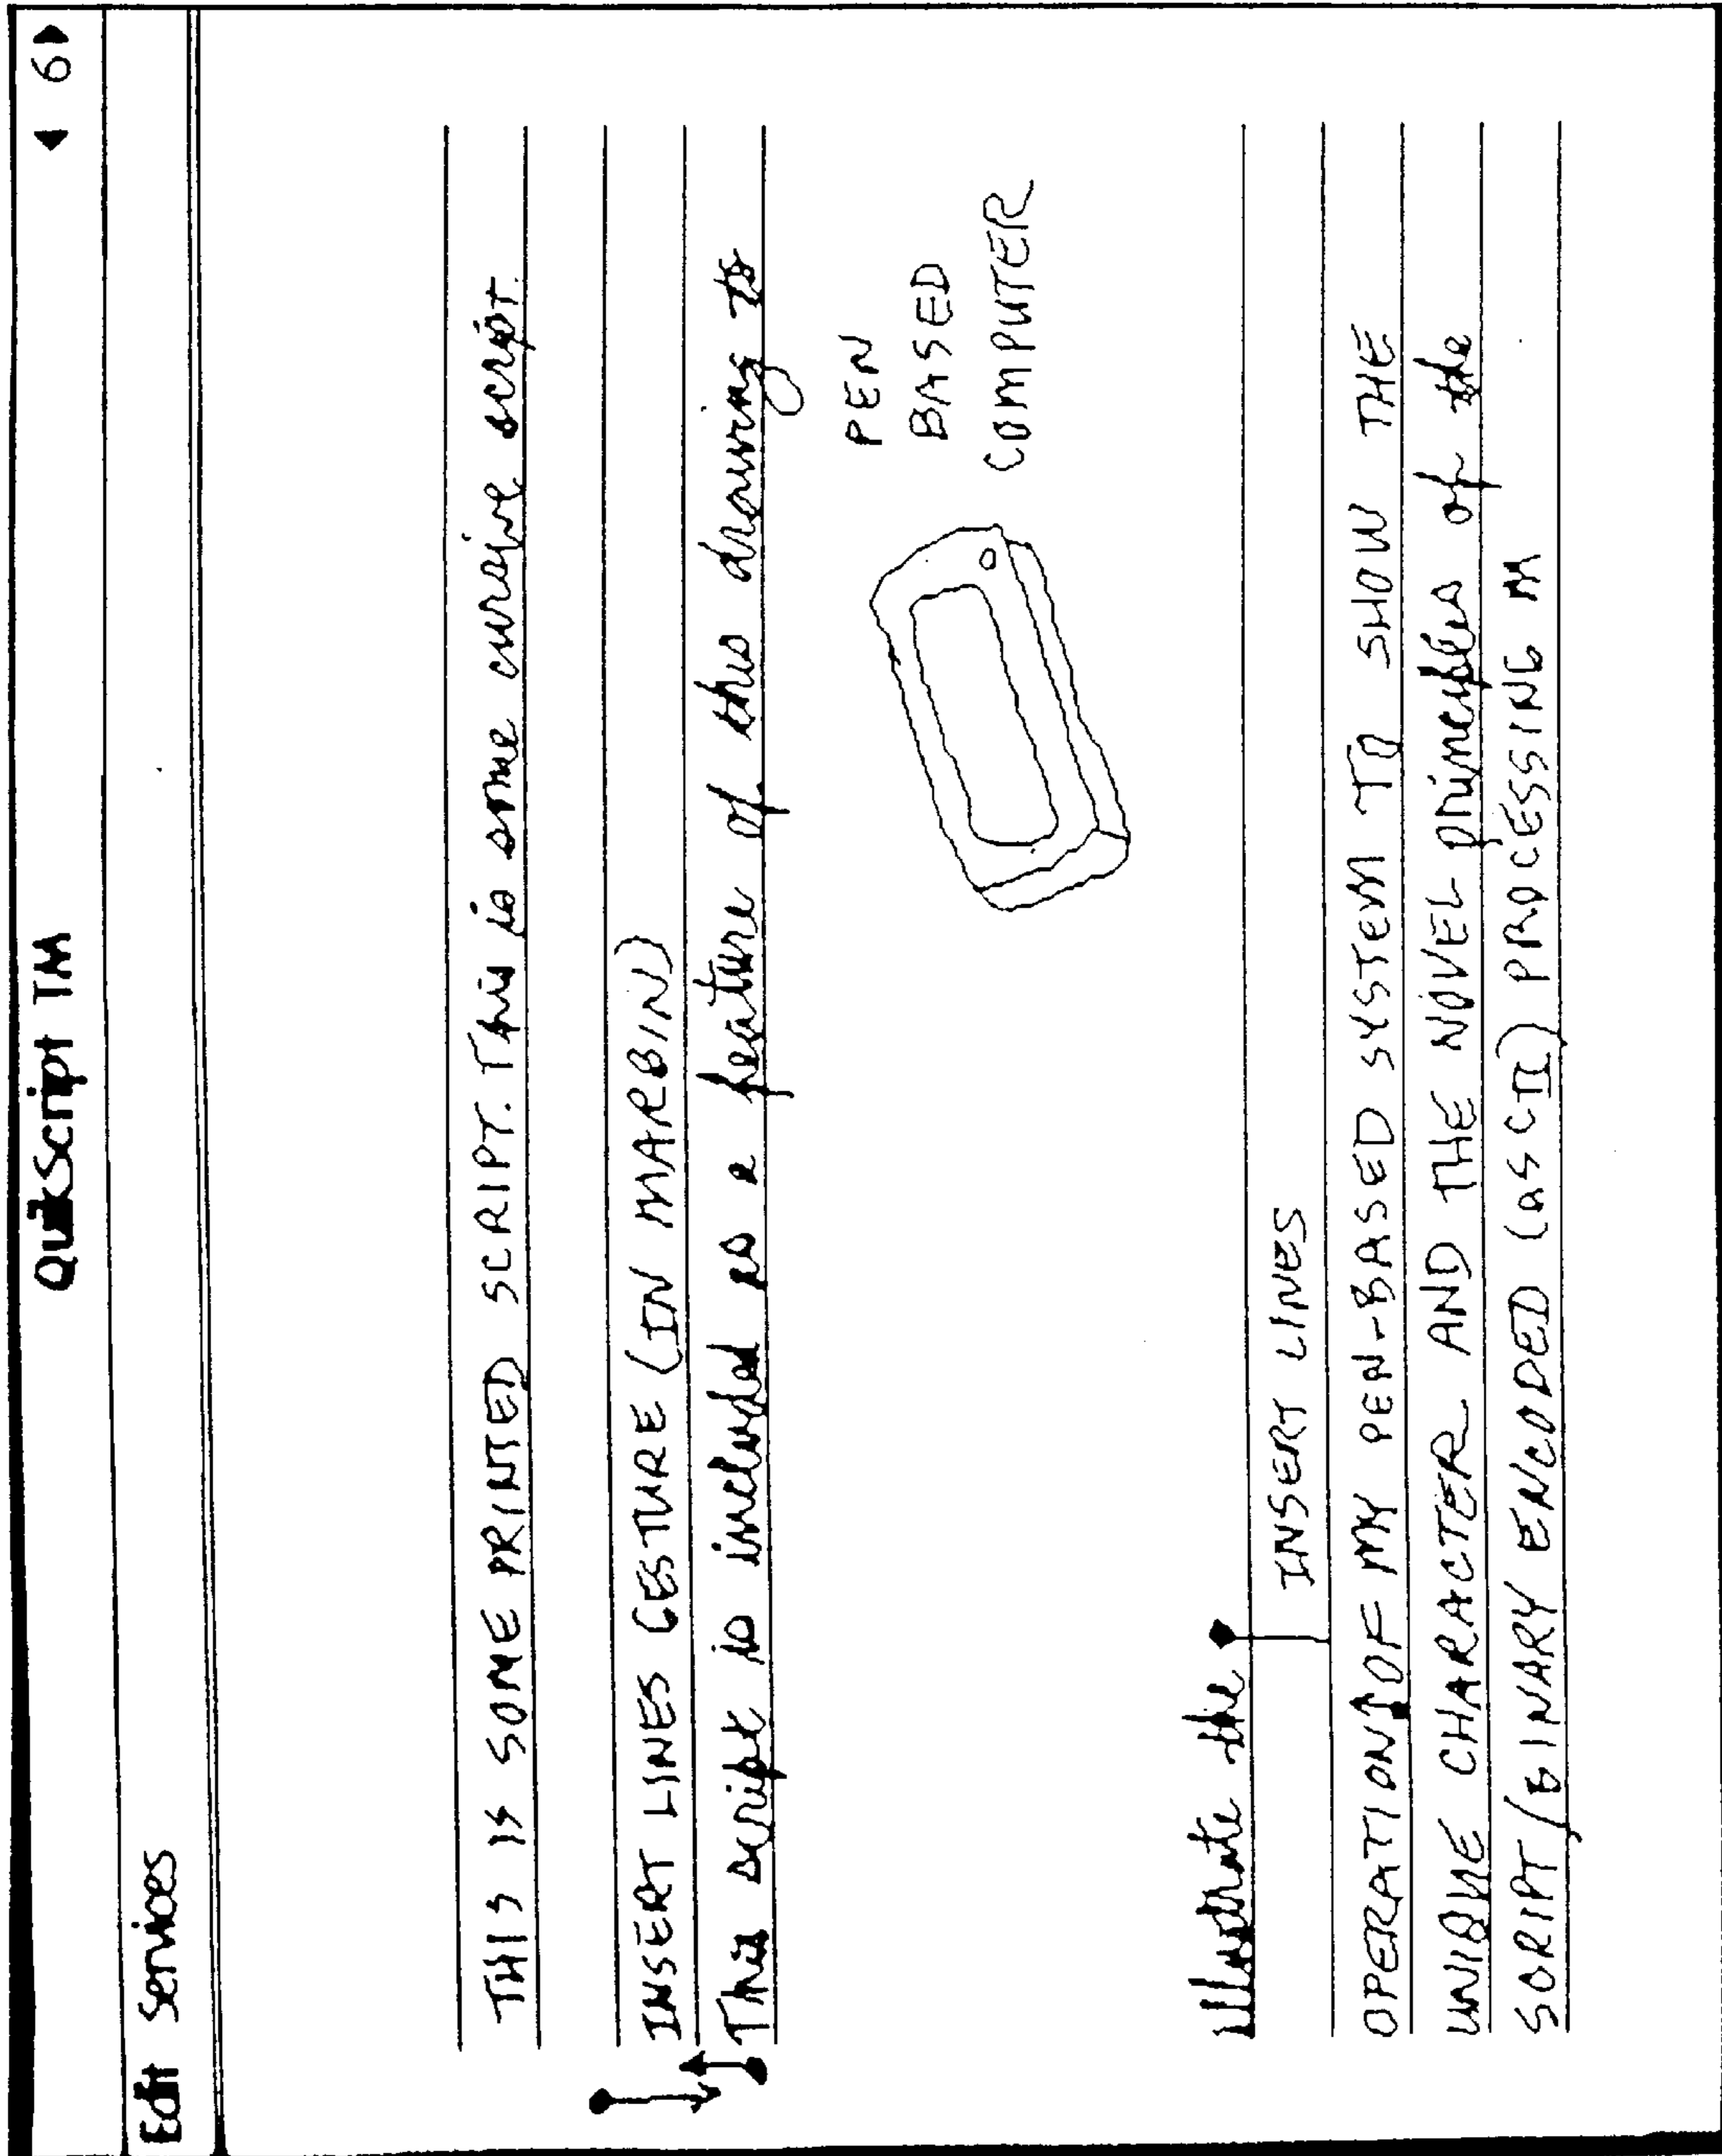 QuikScript TM
6
Edit Services
THIS IS SOME PRINTED SCRIPT. This is some cursive script.
INSERT LINES GESTURE (IN MARGIN)
This script is included as a feature of this drawing to
PEN
BASED
COMPUTER
illustrate the
INSERT LINES
OPERATION OF MY PEN-BASED SYSTEM TO SHOW THE
UNIQUE CHARACTER AND THE NOVEL principles of the
SCRIPT/BINARY ENCODED (ASCII) PROCESSING M